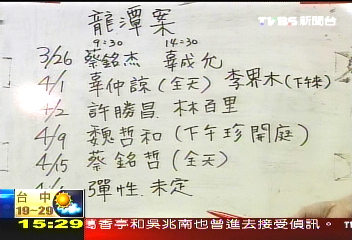 TVBS 新聞台
龍潭案
9:30 14:30
3/26 蔡銘杰 辜成允
4/1 辜仲諒(全天) 李界木(下午)
4/2 許勝昌 林百里
4/9 魏哲和(下午珍開庭)
4/15 蔡銘哲(全天)
彈性未定
台中
19~29
15:29 葛香亭和吳兆南也曾進去接受偵訊。